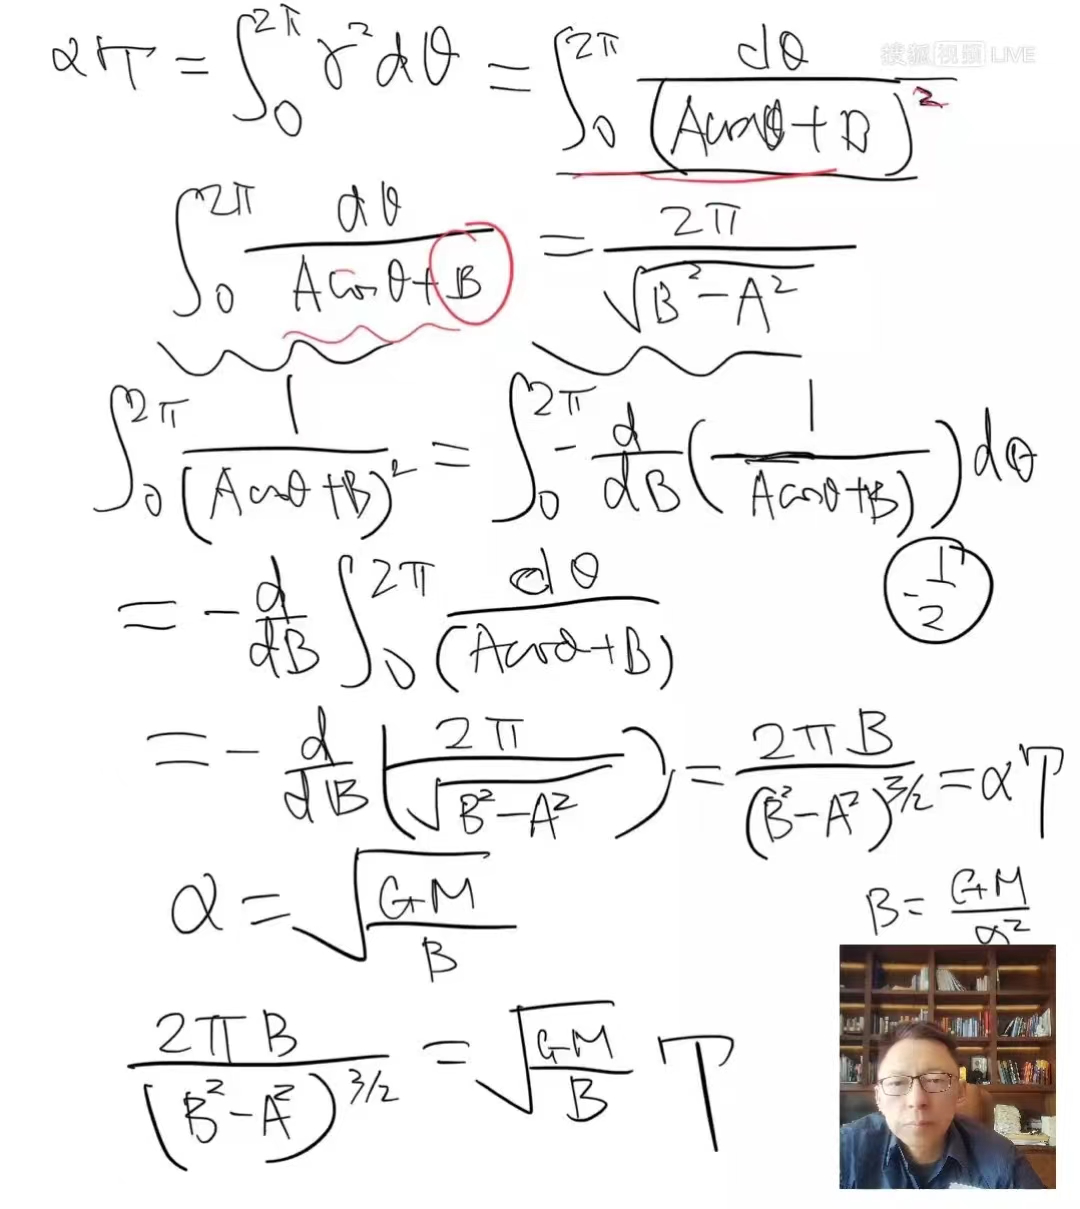 搜狐视频 LIVE
αT = ∫₀^{2π} r² dθ = ∫₀^{2π} dθ / (A cosθ + B)²
∫₀^{2π} dθ / (A cosθ + B) = 2π / √(B² − A²)
∫₀^{2π} 1 / (A cosθ + B)² = ∫₀^{2π} − d/dB (1 / (A cosθ + B)) dθ
−1/2
= − d/dB ∫₀^{2π} dθ / (A cosθ + B)
= − d/dB (2π / √(B² − A²)) = 2πB / (B² − A²)^{3/2} = αT
α = √(GM / B)
B = GM / α²
2πB / (B² − A²)^{3/2} = √(GM / B) T